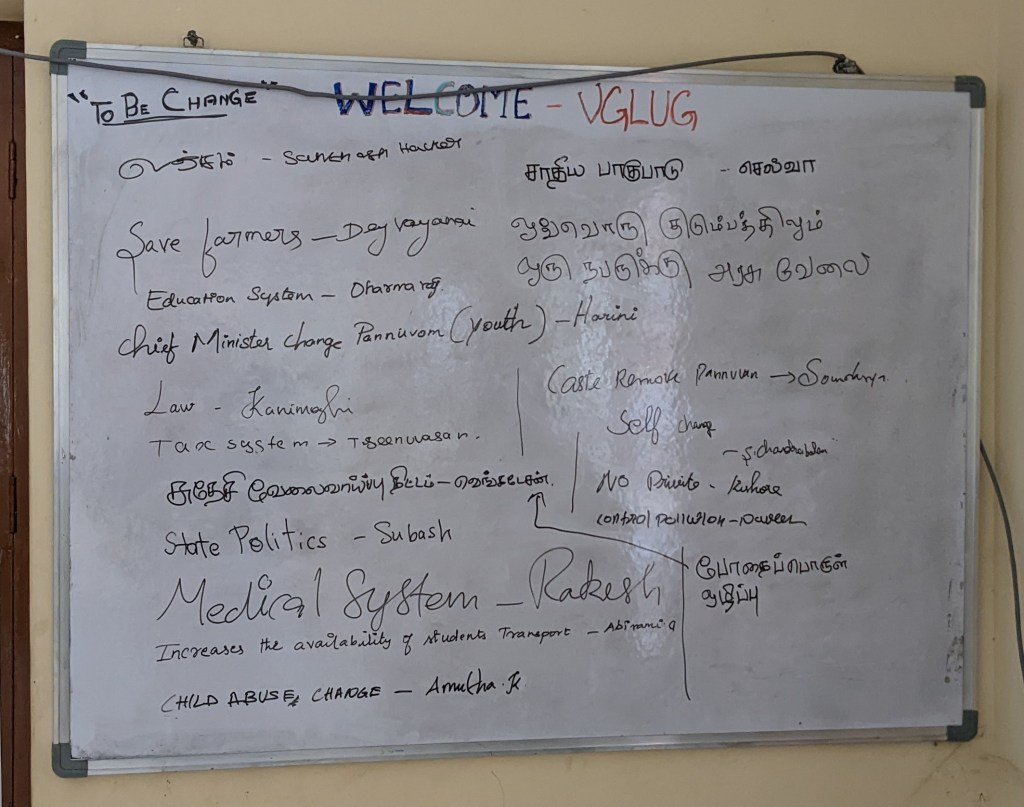 "TO BE CHANGE"
WELCOME - VGLUG
சாதிய பாகுபாடு - செல்வா
Save farmers - Deyvayanai
ஒவ்வொரு குடும்பத்திலும்
ஒரு நபருக்கு அரசு வேலை
Education System -
Chief Minister change Pannuvom (youth) - Harini
Caste Remove Pannuvan → Sowmiya.
Law - Kanimozhi
Self change
Tax system →
- S. Chandrabalan
சுதேசி வேலைவாய்ப்பு திட்டம் - வெங்கடேசன்.
No Private - Kishore
control pollution - Naveen
State Politics - Subash
போதைப்பொருள்
ஒழிப்பு
Medical System - Rakesh
Increases the availability of students Transport - Abirami.a
CHILD ABUSE, CHANGE - Amutha.k